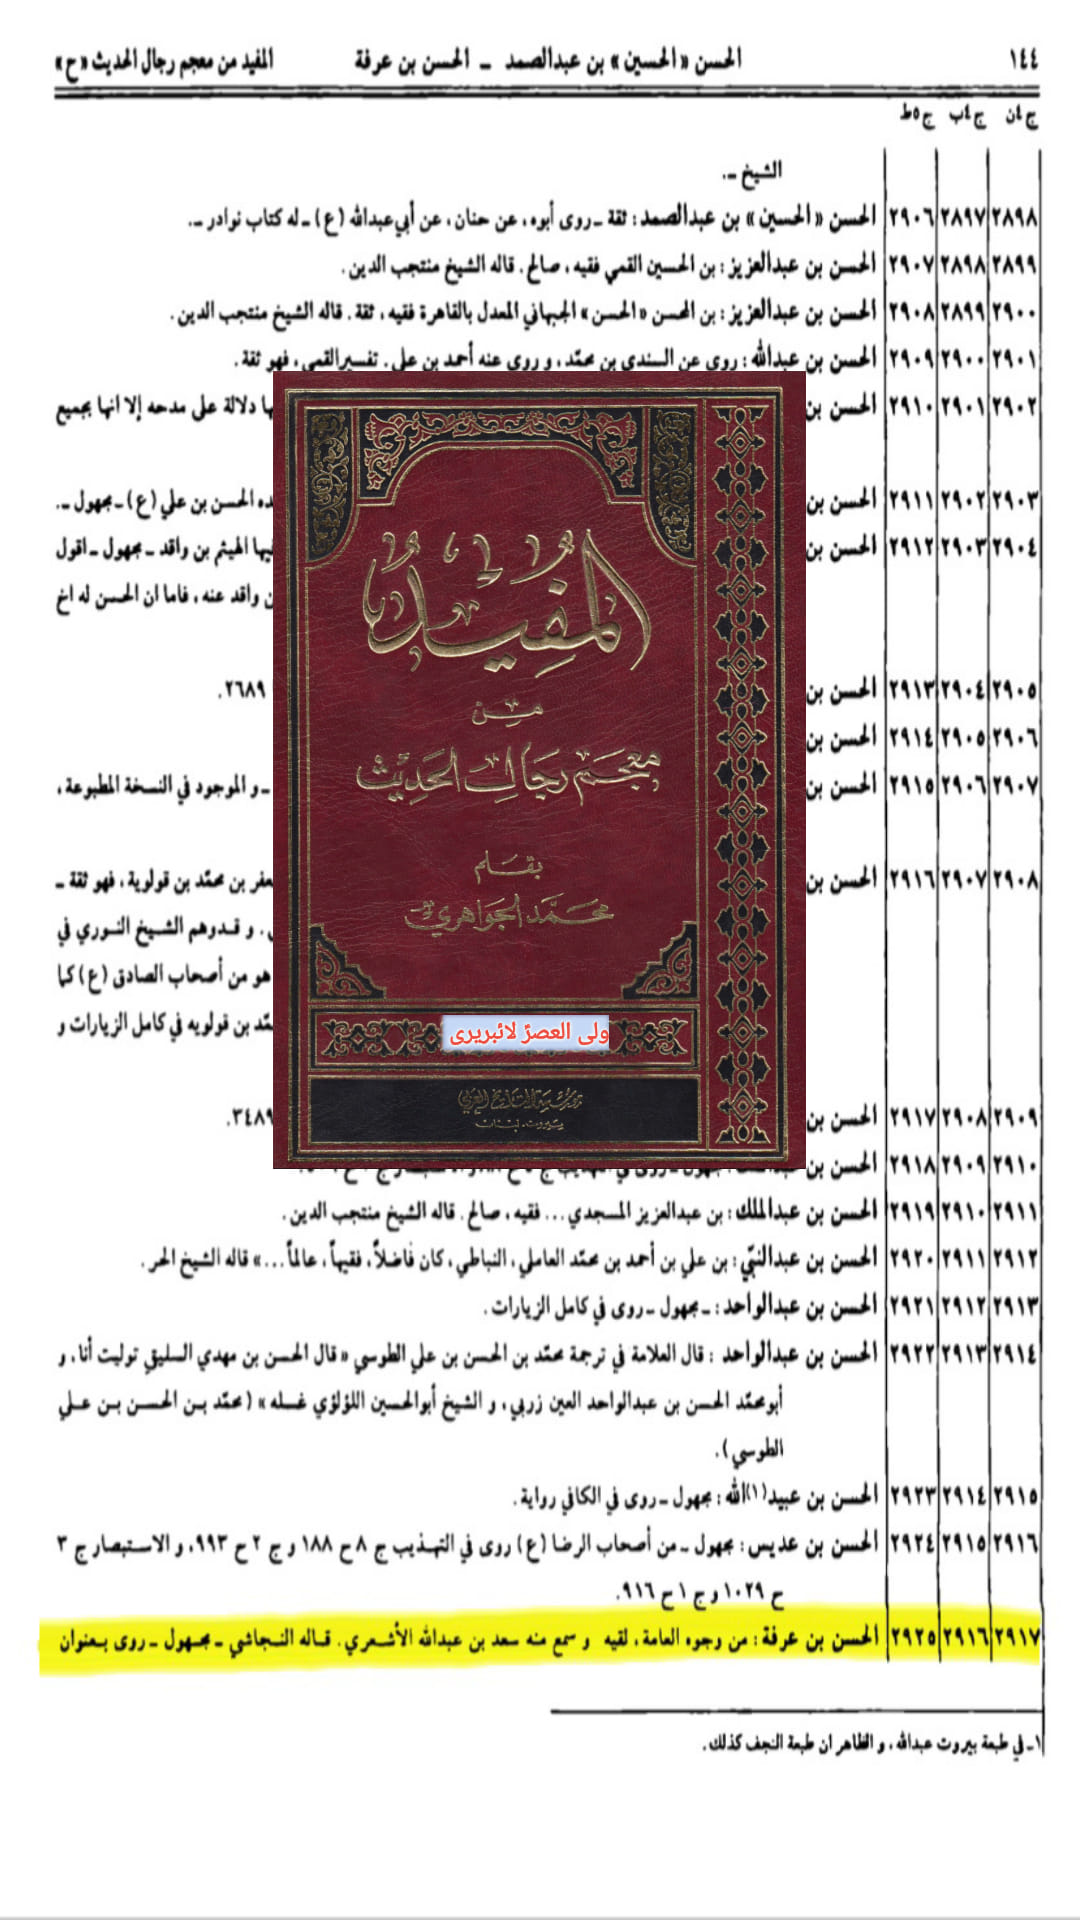 ١٤٤ الحسن «الحسين» بن عبدالصمد ـ الحسن بن عرفة المفيد من معجم رجال الحديث «ح»
ج٤ن ج٤ب ج٥ط
الشيخ ـ.
٢٨٩٨ ٢٨٩٧ ٢٩٠٦ الحسن «الحسين» بن عبدالصمد: ثقة ـ روى أبوه، عن حنان، عن أبي عبدالله (ع) ـ له كتاب نوادر ـ.
٢٨٩٩ ٢٨٩٨ ٢٩٠٧ الحسن بن عبدالعزيز: بن الحسين القمي فقيه، صالح. قاله الشيخ منتجب الدين.
٢٩٠٠ ٢٨٩٩ ٢٩٠٨ الحسن بن عبدالعزيز: بن المحسن «الحسن» الجبهاني المعدل بالقاهرة فقيه، ثقة. قاله الشيخ منتجب الدين.
٢٩٠١ ٢٩٠٠ ٢٩٠٩ الحسن بن عبدالله: روى عن السندي بن محمّد، و روى عنه أحمد بن علي. تفسيرالقمي، فهو ثقة.
٢٩٠٢ ٢٩٠١ ٢٩١٠ الحسن بن ها دلالة على مدحه إلا انها بجميع
٢٩٠٣ ٢٩٠٢ ٢٩١١ الحسن بن ده الحسن بن علي (ع) ـ مجهول ـ.
٢٩٠٤ ٢٩٠٣ ٢٩١٢ الحسن بن فيها الهيثم بن واقد ـ مجهول ـ اقول
ن واقد عنه، فاما ان الحسن له اخ
٢٩٠٥ ٢٩٠٤ ٢٩١٣ الحسن بن ٢٦٨٩.
٢٩٠٦ ٢٩٠٥ ٢٩١٤ الحسن بن
٢٩٠٧ ٢٩٠٦ ٢٩١٥ الحسن بن ـ و الموجود في النسخة المطبوعة،
٢٩٠٨ ٢٩٠٧ ٢٩١٦ الحسن بن عفر بن محمّد بن قولوية، فهو ثقة ـ
. و قدوهم الشيخ النوري في
هو من أصحاب الصادق (ع) كما
مّد بن قولويه في كامل الزيارات و
٢٩٠٩ ٢٩٠٨ ٢٩١٧ الحسن بن ٣٤٨٩.
٢٩١٠ ٢٩٠٩ ٢٩١٨ الحسن بن
٢٩١١ ٢٩١٠ ٢٩١٩ الحسن بن عبدالملك: بن عبدالعزيز المسجدي... فقيه، صالح. قاله الشيخ منتجب الدين.
٢٩١٢ ٢٩١١ ٢٩٢٠ الحسن بن عبدالنبّي: بن علي بن أحمد بن محمّد العاملي، النباطي، كان فاضلاً، فقيهاً، عالماً...» قاله الشيخ الحر.
٢٩١٣ ٢٩١٢ ٢٩٢١ الحسن بن عبدالواحد: ـ مجهول ـ روى في كامل الزيارات.
٢٩١٤ ٢٩١٣ ٢٩٢٢ الحسن بن عبدالواحد: قال العلامة في ترجمة محمّد بن الحسن بن علي الطوسي «قال الحسن بن مهدي السليقي توليت أنا، و
أبومحمّد الحسن بن عبدالواحد العين زربي، و الشيخ أبوالحسين اللؤلؤي غسله» (محمّد بن الحسن بن علي
الطوسي).
٢٩١٥ ٢٩١٤ ٢٩٢٣ الحسن بن عبيد(١)الله: مجهول ـ روى في الكافي رواية.
٢٩١٦ ٢٩١٥ ٢٩٢٤ الحسن بن عديس: مجهول ـ من أصحاب الرضا (ع) روى في التهذيب ج ٨ ح ١٨٨ و ج ٢ ح ٩٩٣، و الاستبصار ج ٣
ح ١٠٢٩ و ج ١ ح ٩١٦.
٢٩١٧ ٢٩١٦ ٢٩٢٥ الحسن بن عرفة: من وجوه العامة، لقيه و سمع منه سعد بن عبدالله الأشعري. قاله النجاشي ـ مجهول ـ روى بعنوان
١ـ في طبعة بيروت عبدالله، و الظاهر ان طبعة النجف كذلك.
المفيد
من
معجم رجال الحديث
بقلم
محمد الجواهري
ولی العصرؑ لائبریری
مؤسسة التاريخ العربي
بيروت ـ لبنان